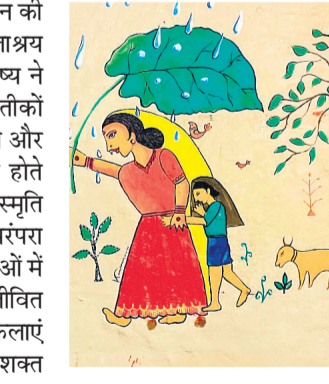 न की
नाश्रय
ष्य ने
तीकों
और
होते
स्मृति
रंपरा
ओं में
जीवित
कलाएं
शक्त